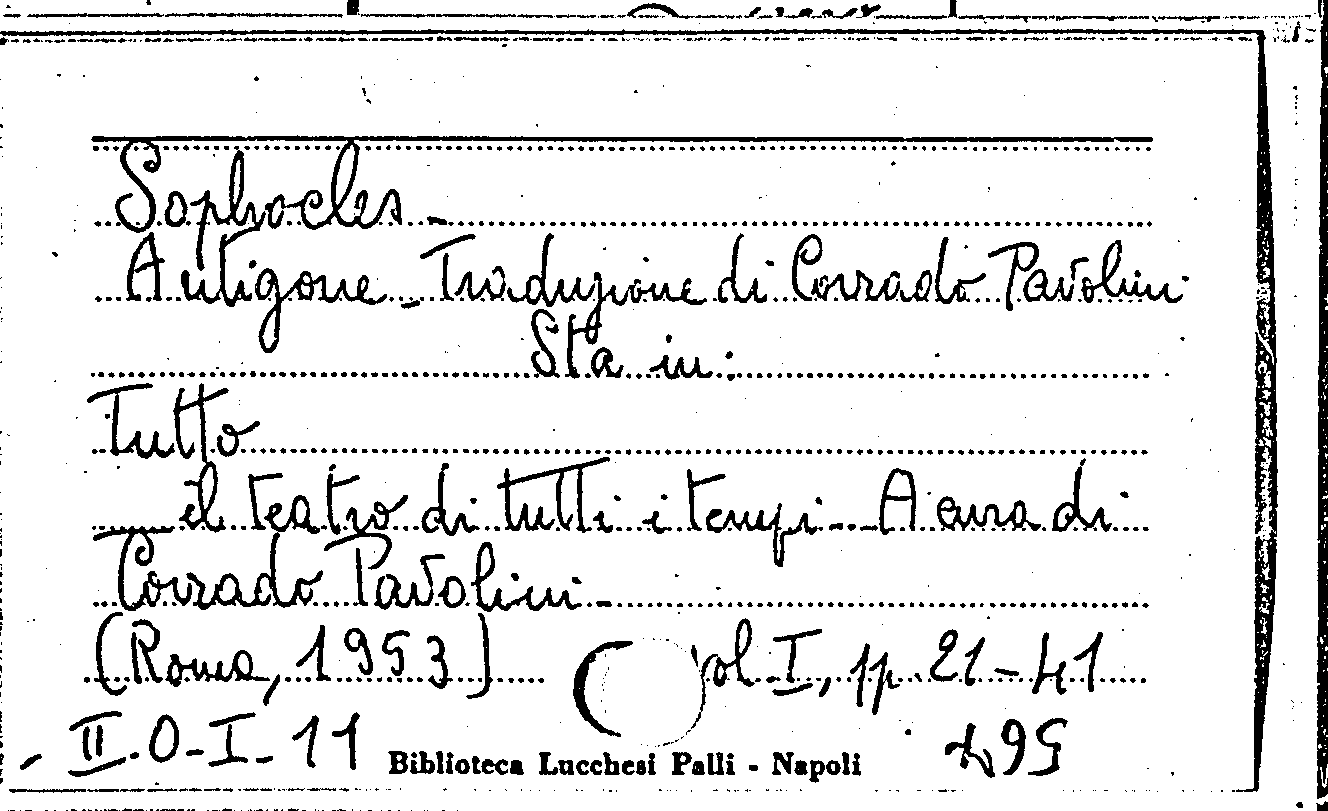 Sophocles -
Antigone - Traduzione di Corrado Pavolini
Sta in:
Tutto
il teatro di tutti i tempi - A cura di
Corrado Pavolini -
(Roma, 1953) vol. I, pp. 21-41
- II.O-I-11
Biblioteca Lucchesi Palli - Napoli